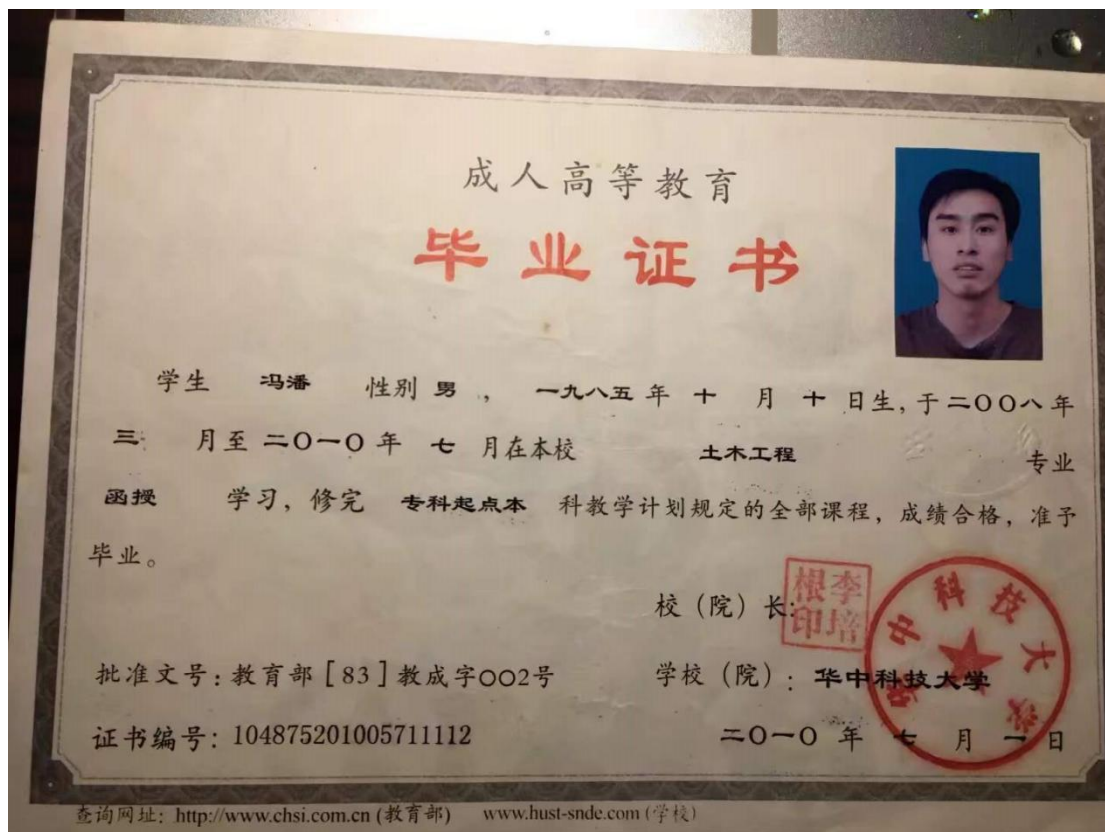 成人高等教育
毕业证书
学生 冯潘 性别 男 ， 一九八五 年 十 月 十 日生，于 二〇〇八 年
三 月至 二〇一〇 年 七 月在本校 土木工程 专业
函授 学习，修完 专科起点本 科教学计划规定的全部课程，成绩合格，准予
毕业。
校（院）长：
李培根印
批准文号：教育部［83］教成字〇〇2号
学校（院）：华中科技大学
华中科技大学
证书编号：104875201005711112
二〇一〇 年 七 月 一 日
查询网址：http://www.chsi.com.cn (教育部) www.hust-snde.com (学校)